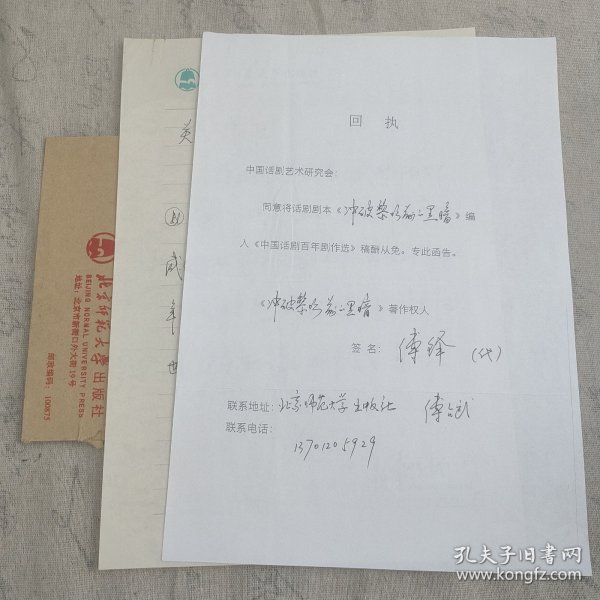 回 执
中国话剧艺术研究会：
同意将话剧剧本《冲破黎明前的黑暗》编
入《中国话剧百年剧作选》稿酬从免。专此函告。
《冲破黎明前的黑暗》著作权人
签名： 傅铎 (代)
联系地址：北京师范大学出版社 傅
联系电话：
13701205929
北京师范大学出版社
BEIJING NORMAL UNIVERSITY PRESS
地址：北京市新街口外大街19号
邮政编码：100875
孔夫子旧书网
www.kongfz.com